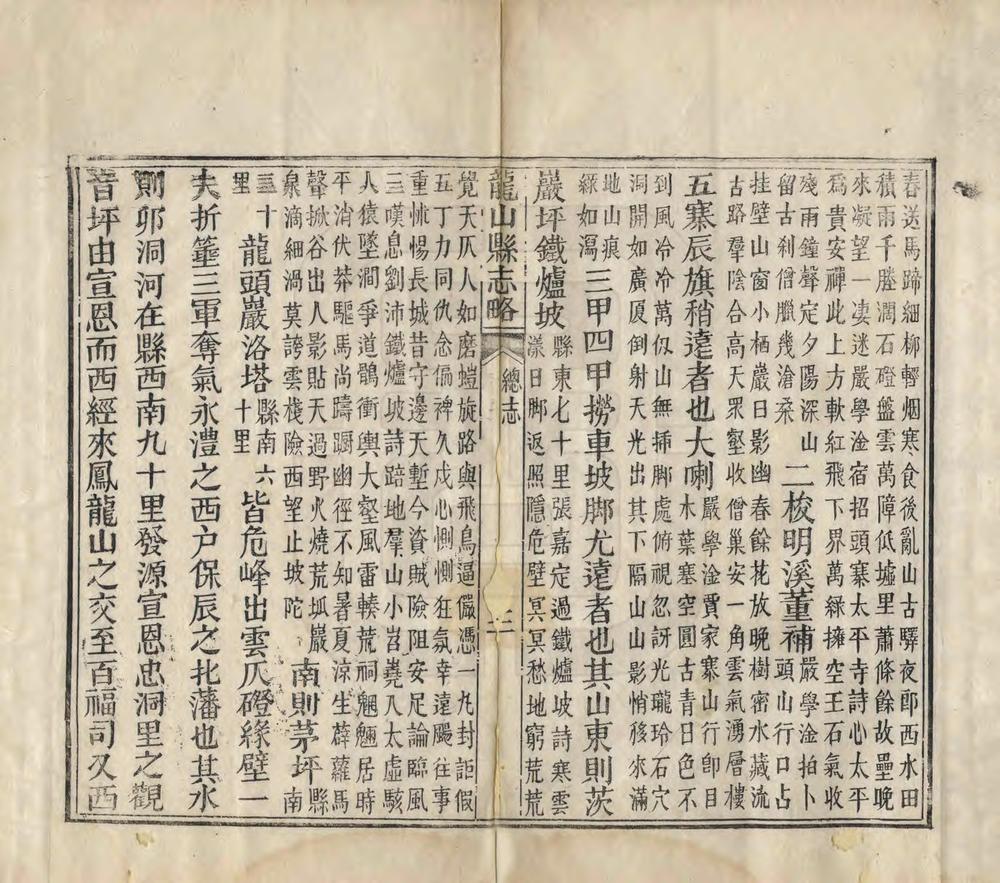 春送馬蹄細柳輕烟寒食後亂山古驛夜郎西水田
積雨千塍潤石磴盤雲萬障低墟里蕭條餘故壘晚
來凝望一凄迷嚴學淦宿招頭寨太平寺詩心太平
爲貴安禪此上方軟紅飛下界萬綠擁空王石氣收
殘雨鐘聲定夕陽深山
留古刹僧臘幾滄桑
二梭明溪董補
嚴學淦拍卜
頭山行口占
挂壁山窗小栖巖日影幽春餘花放晚樹密水藏流
古路羣陰合高天眾壑收僧巢安一角雲氣湧層樓
五寨辰旗稍遠者也大喇
嚴學淦賈家寨山行卽目
木葉塞空圓古青日色不
到風冷冷萬仭山無揷脚處俯視忽訝光瓏玲石穴
洞開如廣厦倒射天光出其下隔山山影悄移來滿
地山痕
綠如瀉
三甲四甲撈車坡脚尤遠者也其山東則茨
巖坪鐵爐坡
縣東七十里張嘉定過鐵爐坡詩寒雲
漾日脚返照隱危壁冥冥愁地窮荒荒
龍山縣志略
總志
三
覺天仄人如磨螘旋路與飛鳥逼儼憑一丸封詎假
五丁力同仇念偏裨久戍心惻惻狂氛幸遠颺往事
重怵惕長城昔守邊天塹今資賊險阻安足論臨風
三嘆息劉沛鐵爐坡詩踣地羣山小岧嶤八太虛駭
人猿墜澗爭道鶻衝輿大壑風雷輳荒祠魍魎居時
平消伏莽驅馬尚躊躕幽徑不知暑夏凉生薜蘿馬
聲掀谷出人影貼天過野火燒荒坬巖
泉滴細渦莫誇雲棧險西望止坡陀
南則茅坪
縣南
三十
里
龍頭巖洛塔
縣南六
十里
皆危峰出雲仄磴緣壁一
夫折箠三軍奪氣永澧之西户保辰之北藩也其水
則卯洞河在縣西南九十里發源宣恩忠洞里之觀
音坪由宣恩而西經來鳳龍山之交至百福司又西